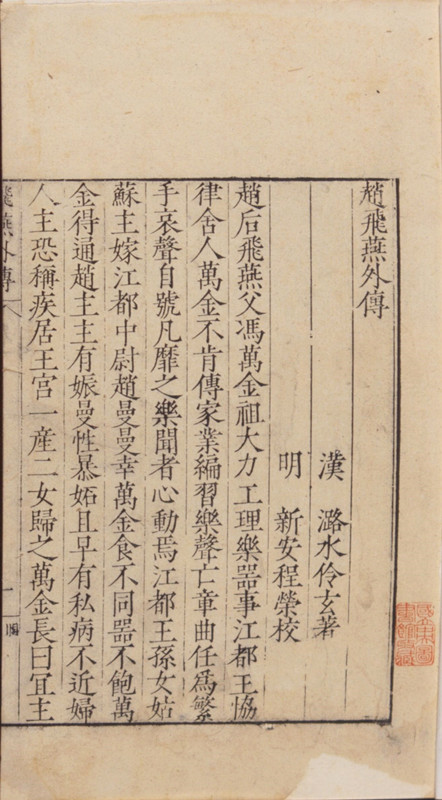 趙飛燕外傳
漢　潞水伶玄著
明　新安程榮校
趙后飛燕父馮萬金祖大力工理樂器事江都王協
律舍人萬金不肯傳家業編習樂聲亡章曲任爲繁
手哀聲自號凡靡之樂聞者心動焉江都王孫女姑
蘇主嫁江都中尉趙曼曼幸萬金食不同器不飽萬
金得通趙主主有娠曼性暴妬且早有私病不近婦
人主恐稱疾居王宮一產二女歸之萬金長曰宜主
飛燕外傳　一